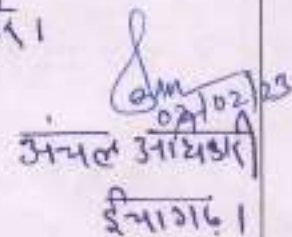 02/02/23
अंचल अधिकारी
ईचागढ़।